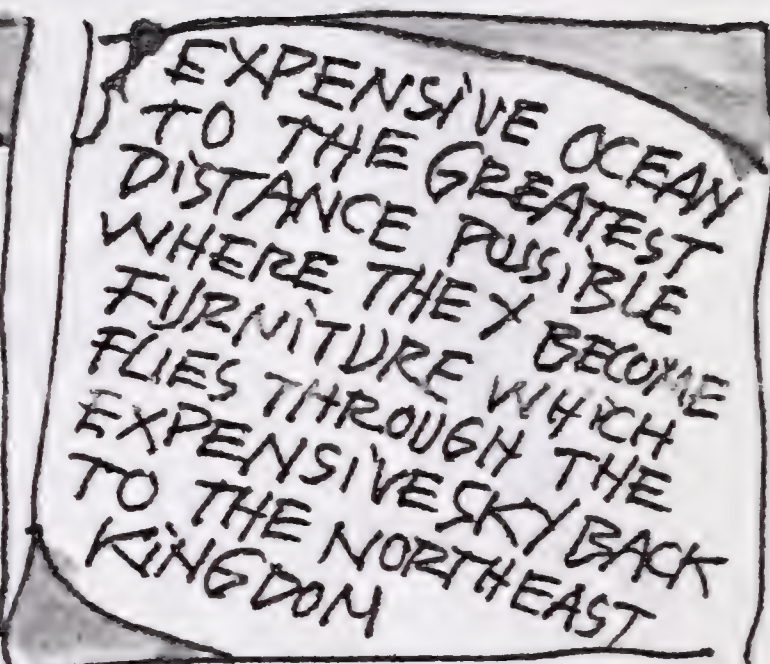 EXPENSIVE OCEAN
TO THE GREATEST
DISTANCE POSSIBLE
WHERE THEY BECOME
FURNITURE WHICH
FLIES THROUGH THE
EXPENSIVE SKY BACK
TO THE NORTHEAST
KINGDOM